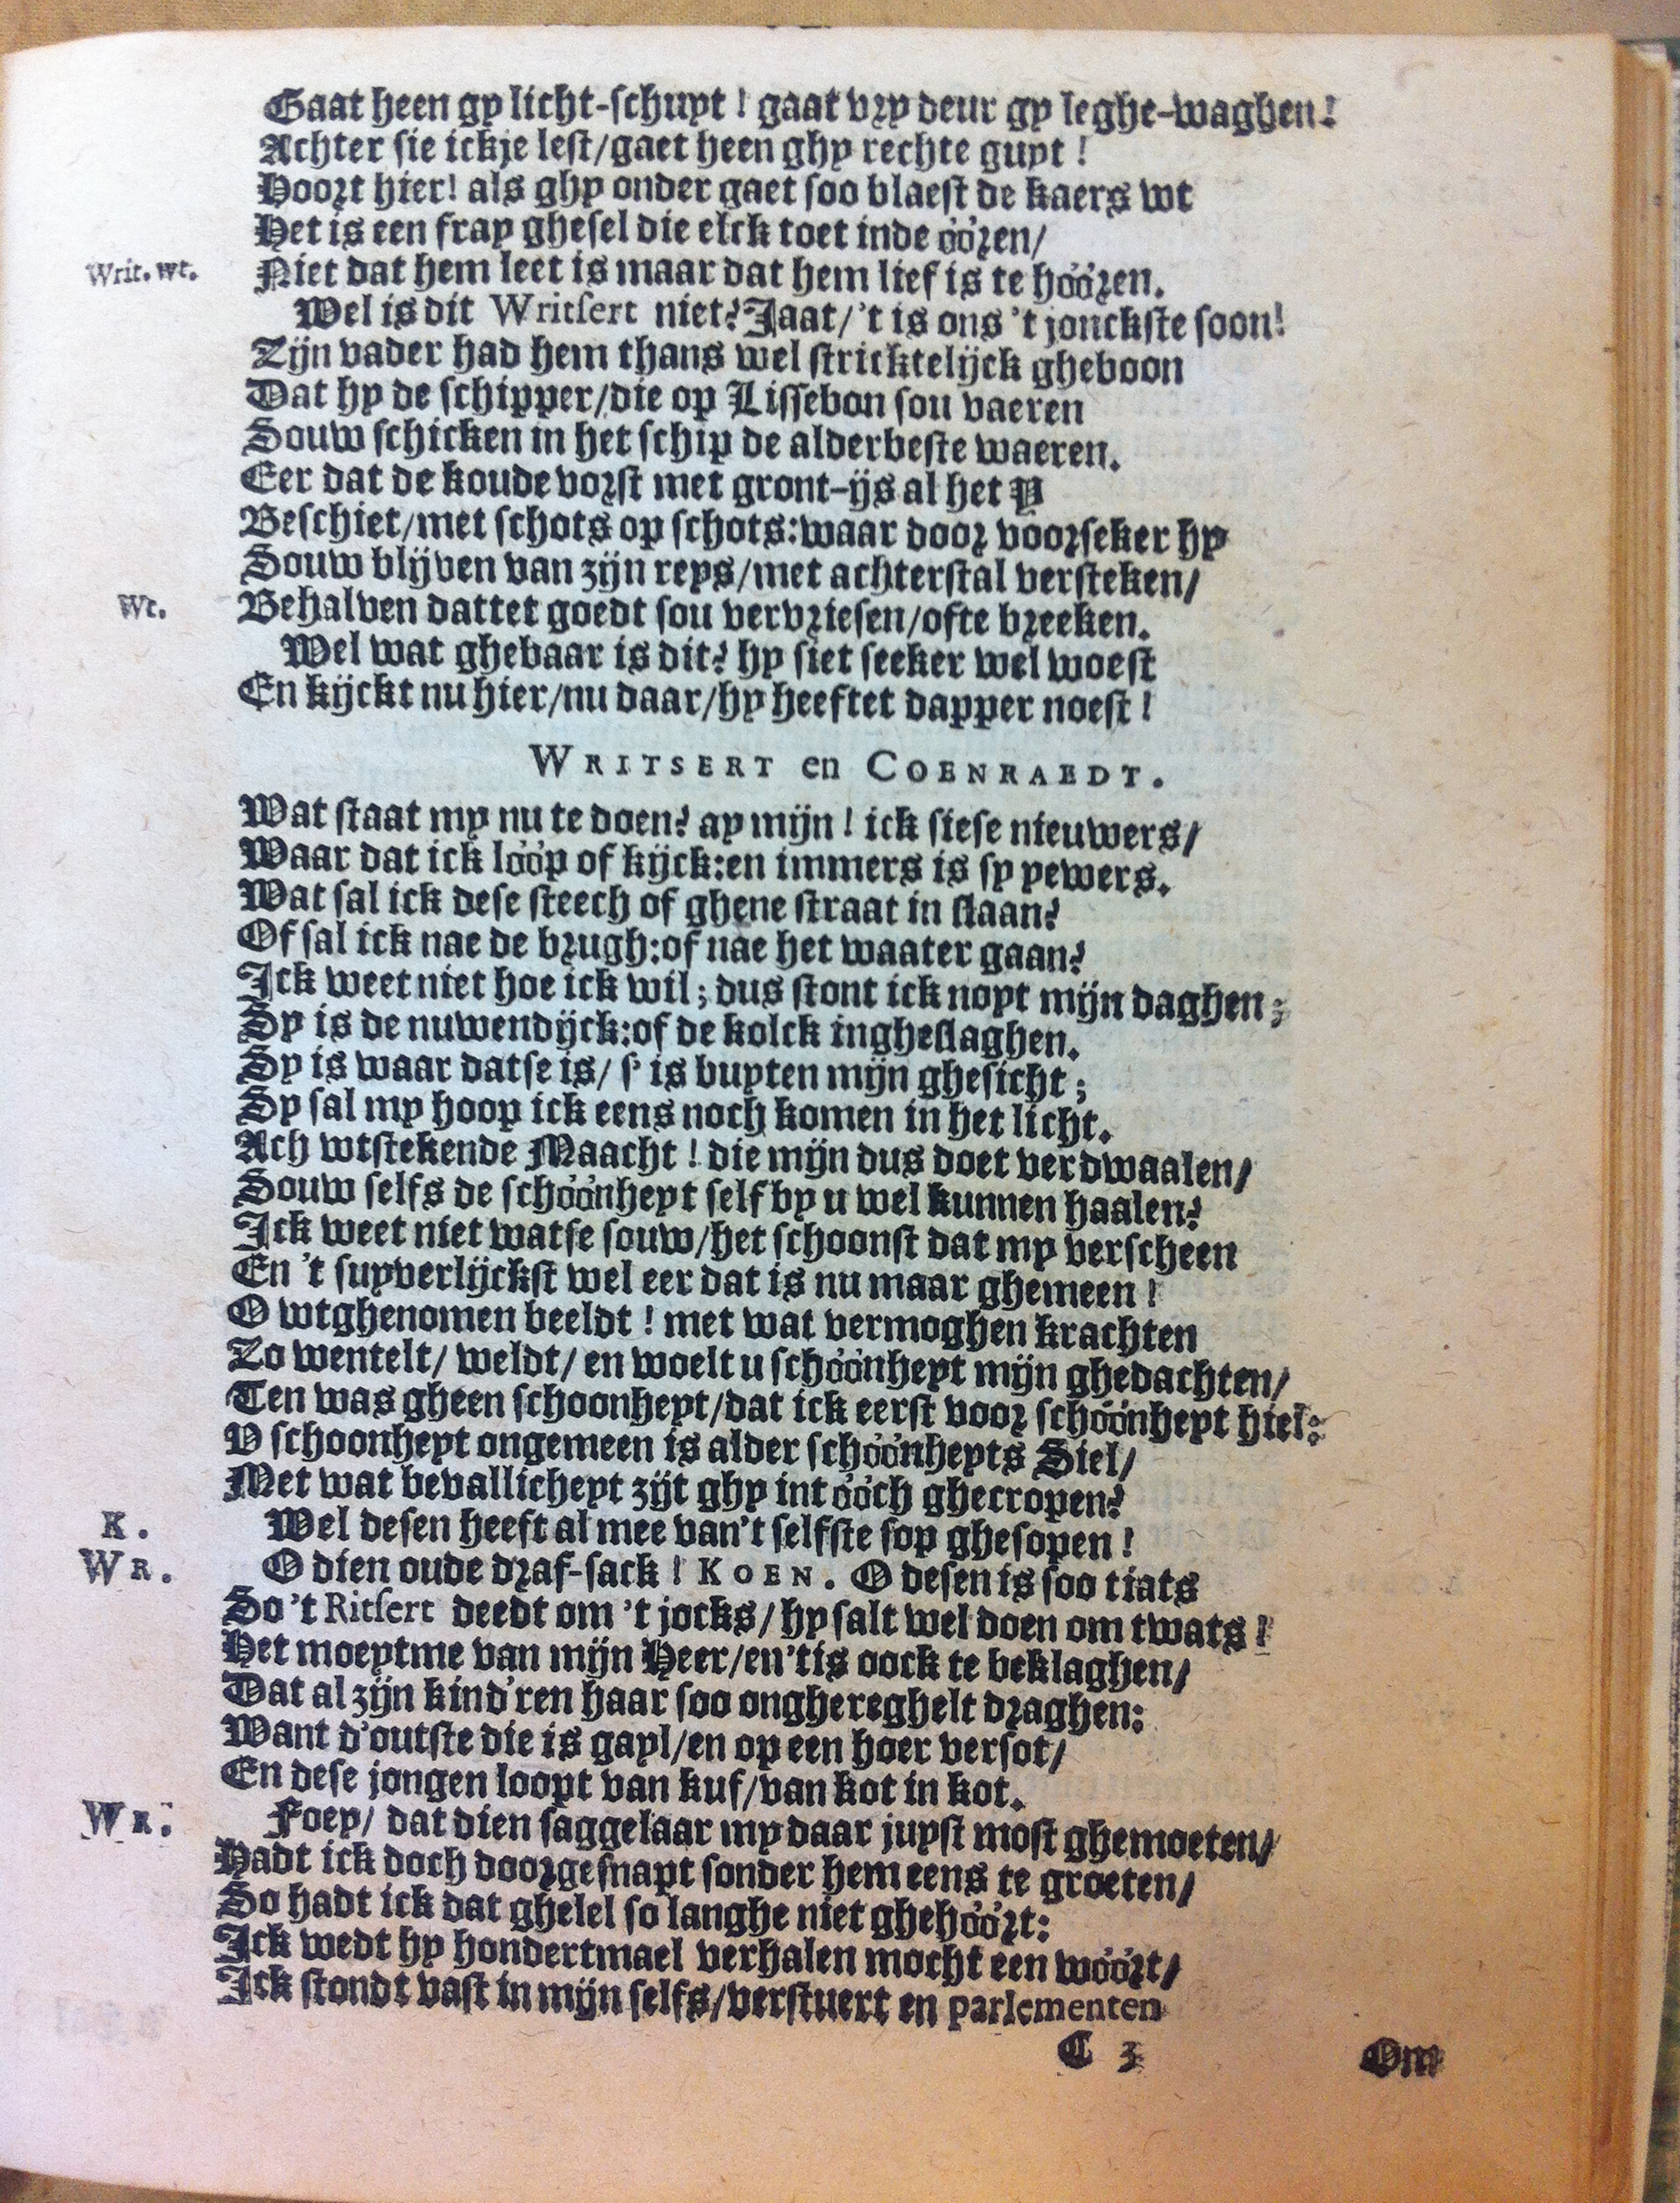 Gaat heen gy licht-schuyt! gaat vry deur gy leghe-waghen!
Achter sie ickje lest/gaet heen ghy rechte guyt!
Hoort hier! als ghy onder gaet soo blaest de kaers wt
Het is een fray ghesel die elck toet inde óóren/
Writ. wt. Niet dat hem leet is maar dat hem lief is te hóóren.
Wel is dit Writsert niet? Jaat/'t is ons 't jonckste soon!
Zijn vader had hem thans wel stricktelijck gheboon
Dat hy de schipper/die op Lissebon sou vaeren
Souw schicken in het schip de alderbeste waeren.
Eer dat de koude vorst met gront-ijs al het Y
Beschiet/met schots op schots: waar door voorseker hy
Souw blijven van zijn reys/met achterstal versteken/
Wt. Behalven dattet goedt sou vervriesen/ofte breeken.
Wel wat ghebaar is dit? hy siet seeker wel woest
En kijckt nu hier/nu daar/hy heeftet dapper noest!
WRITSERT en COENRAEDT.
Wat staat my nu te doen? ay mijn! ick siese nieuwers/
Waar dat ick lóóp of kijck: en immers is sy yewers.
Wat sal ick dese steech of ghene straat in slaan?
Of sal ick nae de brugh: of nae het waater gaan?
Ick weet niet hoe ick wil; dus stont ick noyt mijn daghen;
Sy is de nuwendijck: of de kolck ingheslaghen.
Sy is waar datse is/ s' is buyten mijn ghesicht;
Sy sal my hoop ick eens noch komen in het licht.
Ach wtstekende Maacht! die mijn dus doet verdwaalen/
Souw selfs de schóónheyt self by u wel kunnen haalen?
Ick weet niet watse souw/het schoonst dat my verscheen
En 't suyverlijckst wel eer dat is nu maar ghemeen!
O wtghenomen beeldt! met wat vermoghen krachten
Zo wentelt/ weldt/ en woelt u schóónheyt mijn ghedachten/
Ten was gheen schoonheyt/dat ick eerst voor schóónheyt hiel:
V schoonheyt ongemeen is alder schóónheyts Siel/
Met wat bevallicheyt zijt ghy int óóch ghecropen?
K. Wel desen heeft al mee van't selfste sop ghesopen!
WR. O dien oude draf-sack! KOEN. O desen is soo tiats
So 't Ritsert deedt om 't jocks/hy salt wel doen om twats!
Het moeytme van mijn Heer/en 'tis oock te beklaghen/
Dat al zijn kind'ren haar soo onghereghelt draghen:
Want d'outste die is gayl/en op een hoer versot/
En dese jongen loopt van kuf/van kot in kot.
WR. Foey/ dat dien saggelaar my daar juyst most ghemoeten/
Hadt ick doch doorgesnapt sonder hem eens te groeten/
So hadt ick dat ghelel so langhe niet ghehóórt:
Ick wedt hy hondertmael verhalen mocht een wóórt/
Ick stondt vast in mijn selfs/verstuert en parlementen
C 3 Om